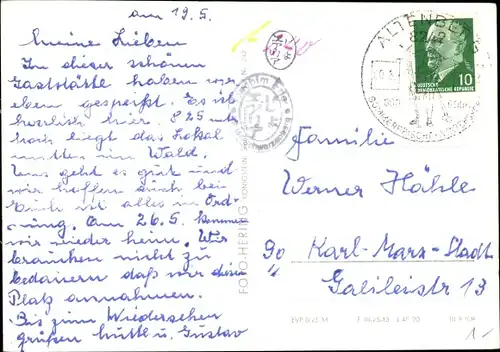 am 19.5.
Meine Lieben
In dieser schönen
Gaststätte haben wir
eben gespeist. Es ist
herrlich hier. 825 mtr
hoch liegt das Lokal
mitten im Wald.
Uns geht es gut und
wir hoffen auch bei
Euch ist alles in Ord-
nung. Am 26.5. kommen
wir wieder heim. Wir
brauchen nicht zu
bedauern daß wir diesen
Platz annahmen.
Bis zum Wiedersehen
grüßen u. Gustav
FOTO-HERING
ALTENBERG
DEUTSCHE
DEMOKRATISCHE REPUBLIK
10
SOMMERFRISCHE
Familie
Werner Hähle
90 Karl-Marx-Stadt
Galileistr 13